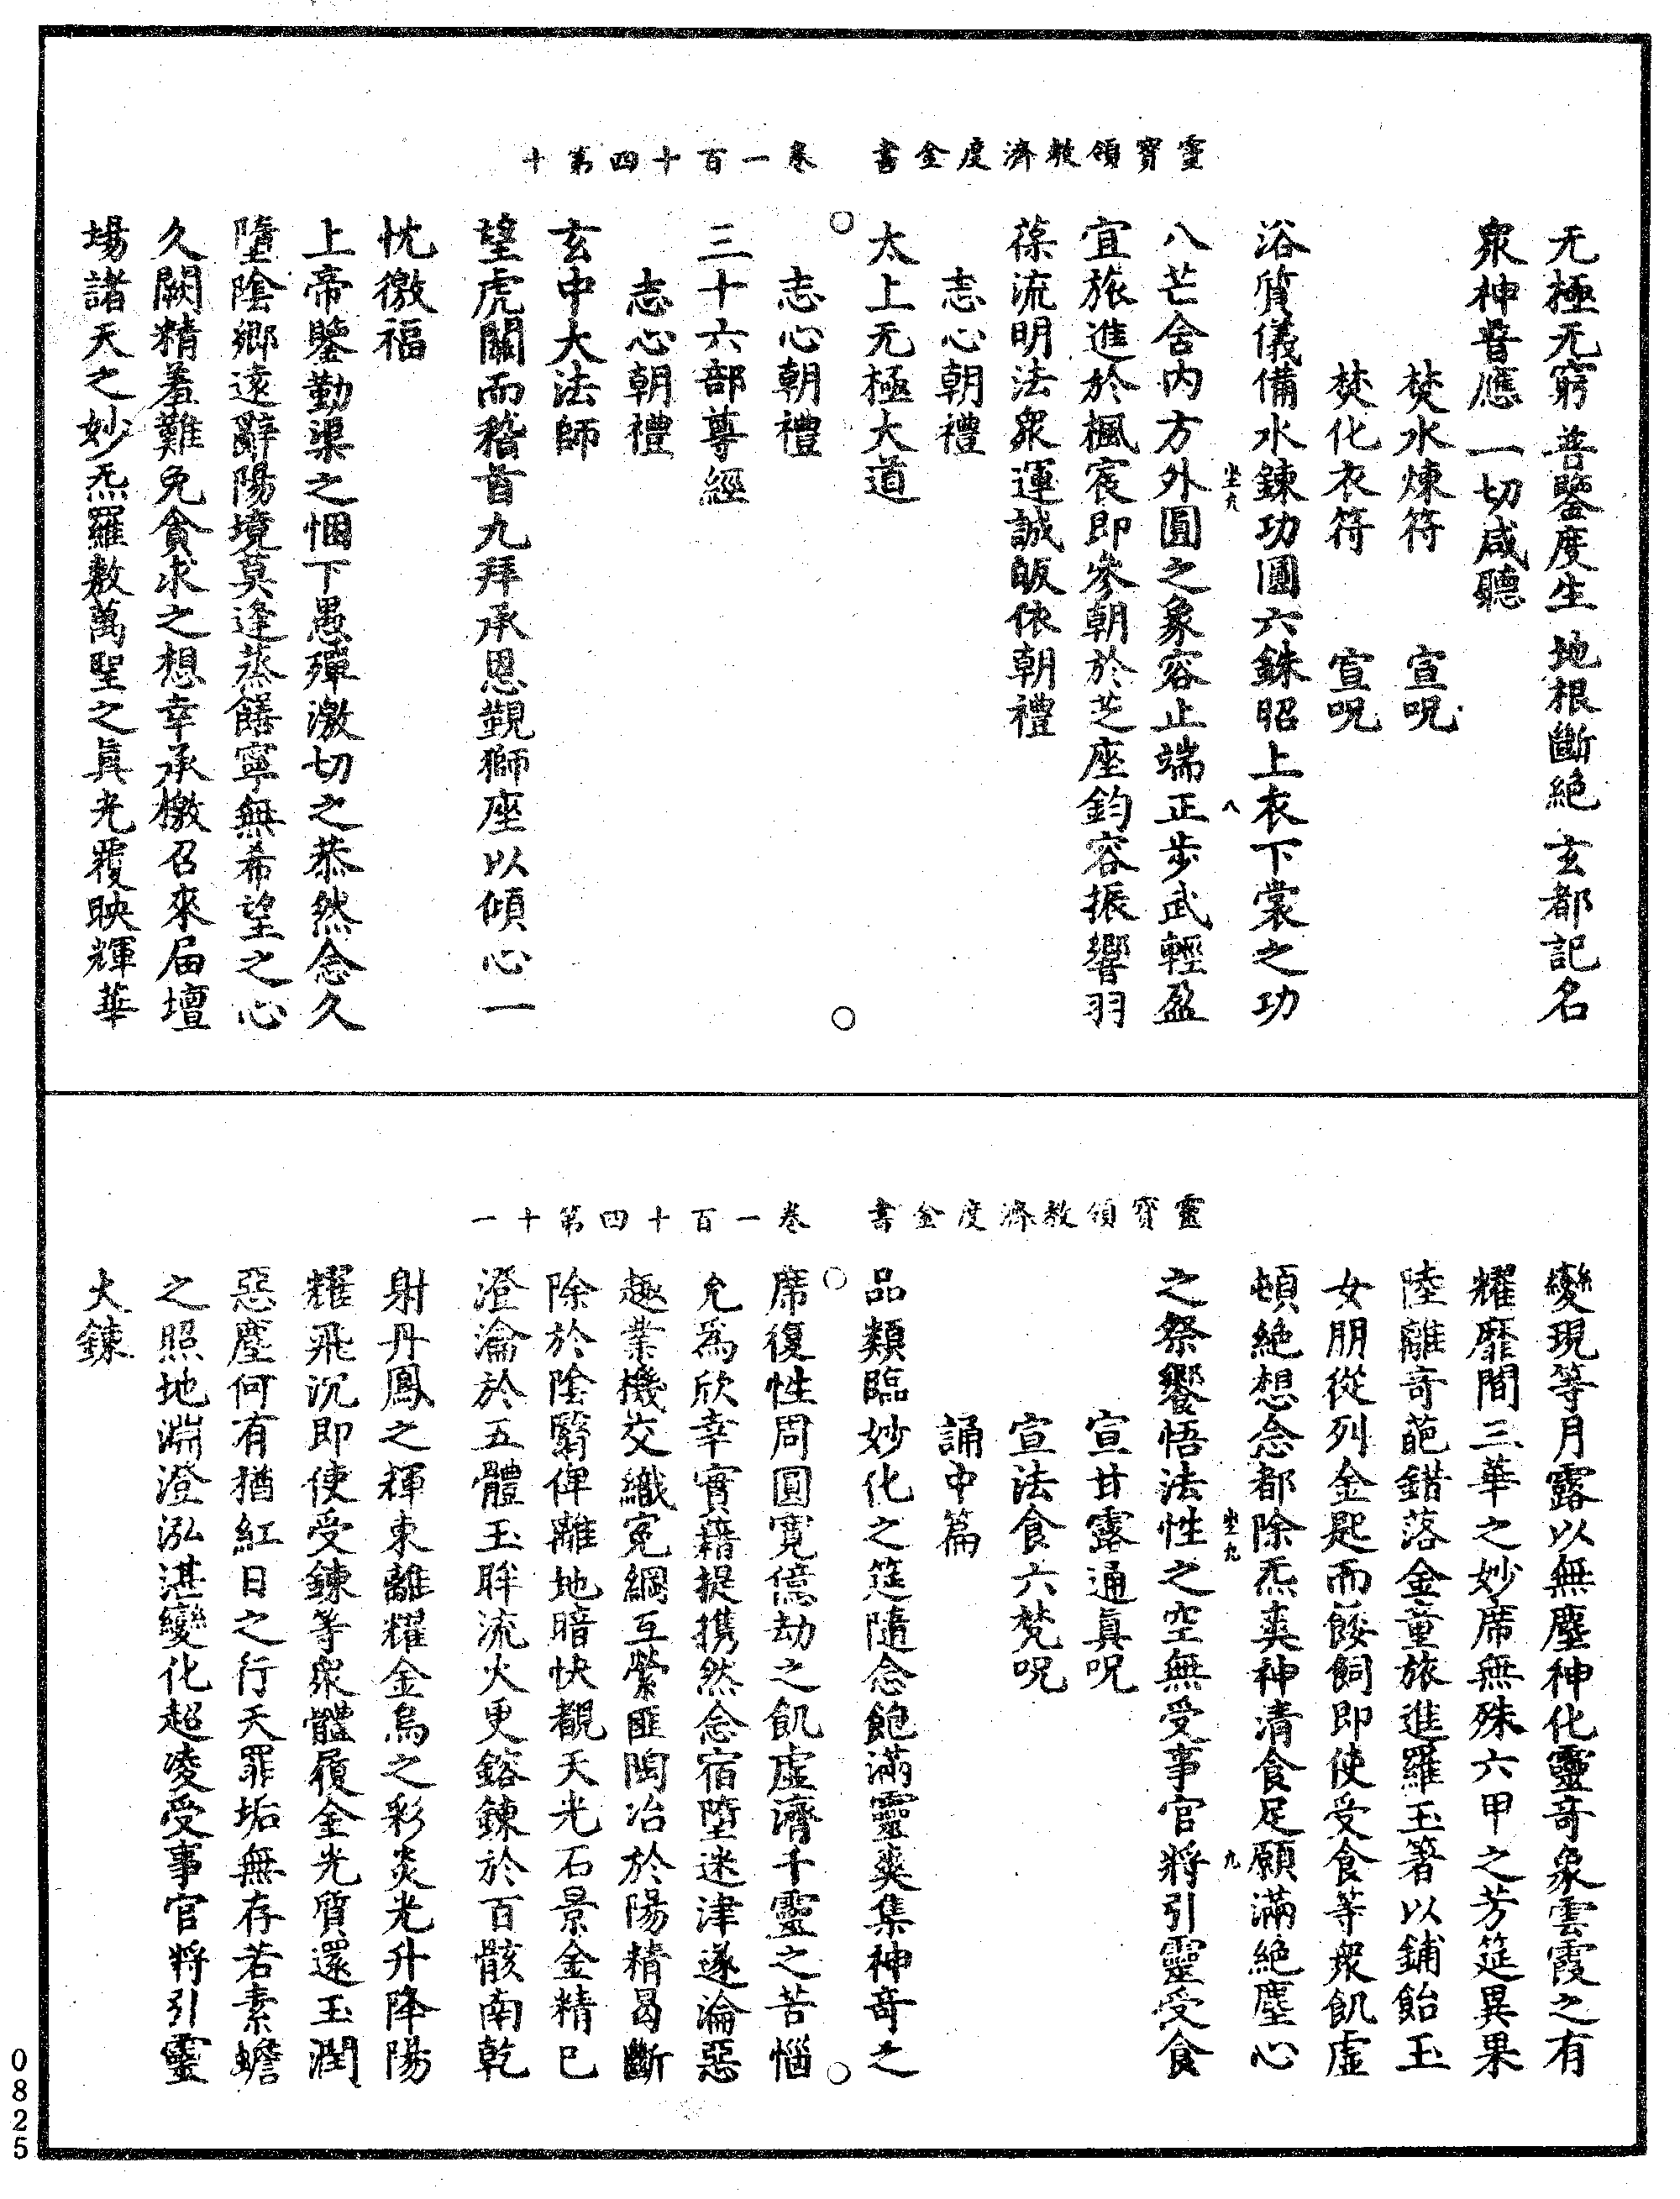 靈寶領教濟度金書　卷一百十四第十
无極无窮　普鑒度生　地根斷絶　玄都記名
衆神普應　一切咸聽
焚水煉符　宣呪
焚化衣符　宣呪
浴質儀備水鍊功圓六銖昭上衣下裳之功
八芒含内方外圓之象容止端正步武輕盈
宜旅進於楓宸即參朝於芝座鈞容振響羽
葆流明法衆運誠皈依朝禮
志心朝禮
太上无極大道
志心朝禮
三十六部尊經
志心朝禮
玄中大法師
望虎關而稽首九拜承恩覲獅座以傾心一
忱徼福
上帝鑒勤渠之悃下愚殫激切之恭然念久
墮陰鄉遠辭陽境莫逢蒸饍寧無希望之心
久闕精羞難免貪求之想幸承檄召來届壇
場諸天之妙炁羅敷萬聖之眞光覆映輝華
靈寶領教濟度金書　卷一百十四第十一
變現等月露以無塵神化靈奇象雲霞之有
耀靡間三華之妙席無殊六甲之芳筵異果
陸離奇葩錯落金童旅進羅玉箸以鋪飴玉
女朋從列金匙而餧飼即使受食等衆飢虛
頓絶想念都除炁爽神清食足願滿絶塵心
之祭饗悟法性之空無受事官將引靈受食
宣甘露通眞呪
宣法食六梵呪
誦中篇
品類臨妙化之筵隨念飽滿靈爽集神奇之
席復性周圓寛億劫之飢虛濟千靈之苦惱
允爲欣幸實藉提携然念宿墮迷津遂淪惡
趣業機交織寃綱互縈匪陶冶於陽精曷斷
除於陰翳俾離地暗快覩天光石景金精已
澄瀹於五體玉眸流火更鎔鍊於百骸南乾
射丹鳳之輝東離耀金烏之彩炎光升降陽
耀飛沉即使受鍊等衆體履金光質還玉潤
惡塵何有猶紅日之行天罪垢無存若素蟾
之照地淵澄泓湛變化超凌受事官將引靈
火鍊
坐九　八
坐九　九
0825